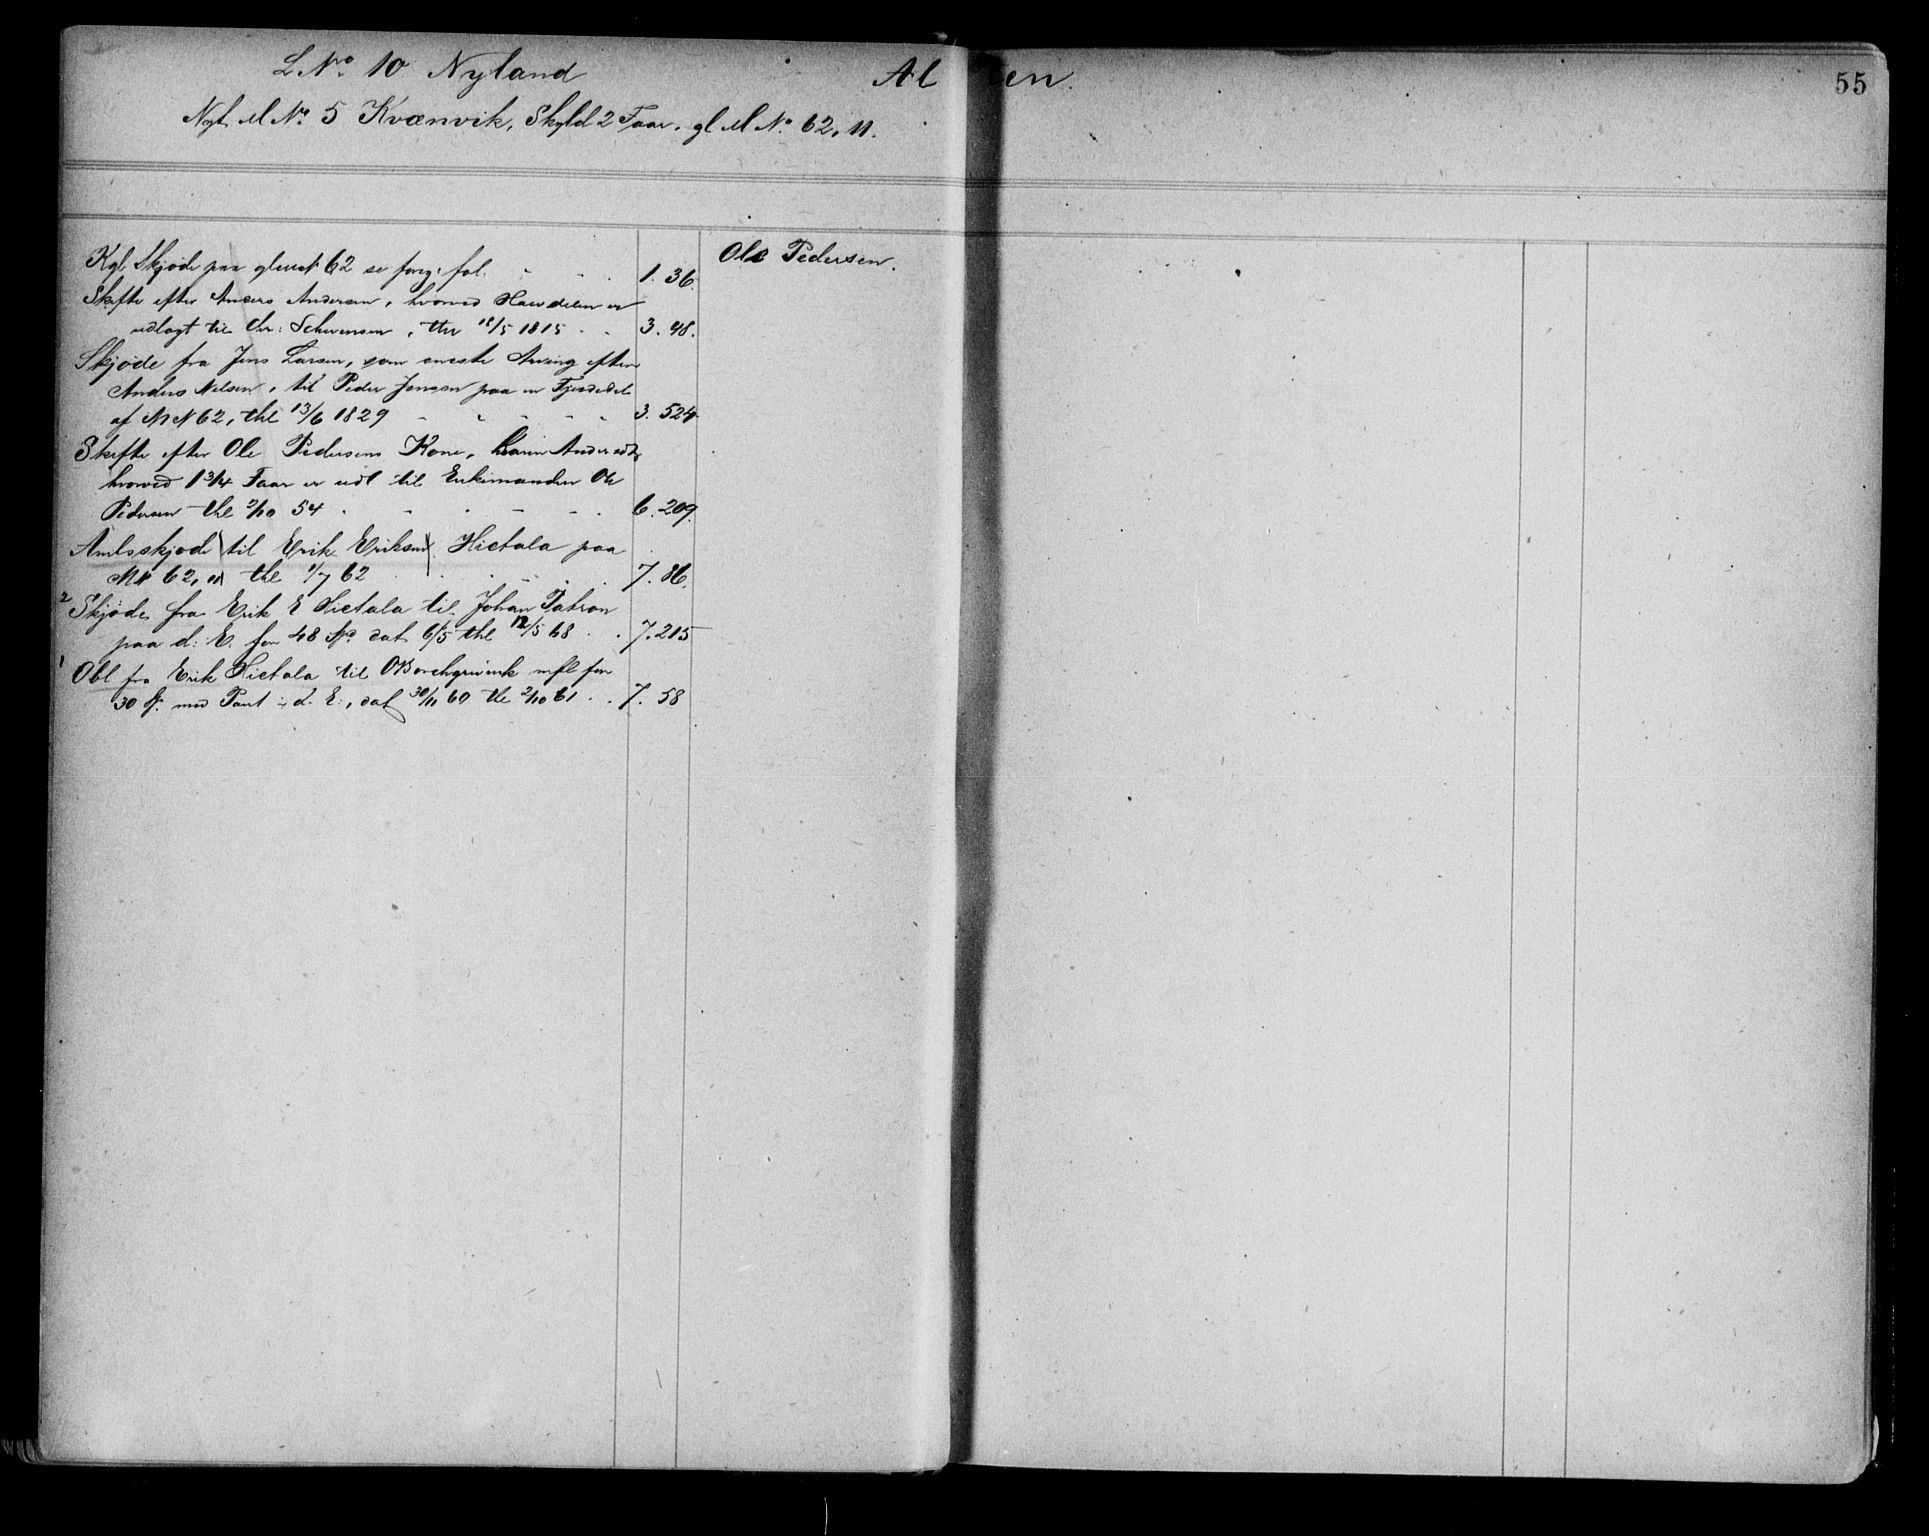 L.No. 10 Nyland
Al ten.
55
Nyt M No. 5 Kvænvik, Skyld 2 Faar. gl M No. 62, 11.
Kgl Skjøde paa glmat 62 se forr. fol. 1. 36.
Ole Pedersen.
Skifte efter Anders Andersen, hvorved Halvdelen er
udlagt til Chr: thl 18/5 1815 3. 48.
Skjøde fra Jens Larsen, som eneste Arving efter
Anders Nilsen, til Peder Jensen paa en Fjerdedel
af M N 62, thl 13/6 1829 3. 524
Skifte efter Ole Pedersens Kone, Karen Andersdtr,
hvorved 1 3/4 Faar er udl til Enkemanden Ole
Pedersen thl 2/10 54 6. 209.
Amtsskjøde til Erik Eriksen Hietala paa
M N 62, 11 thl 1/7 62 7. 86.
2 Skjøde fra Erik E Hietala til Johan Patron
paa d: E. for 48 Spd dat 6/5 thl 12/5 68 7. 215
1 Obl fra Erik Hietala til O Borchgrevink mfl for
30 Sp. med Pant i d. E:, dat 30/11 60 thl 2/10 61 7. 58